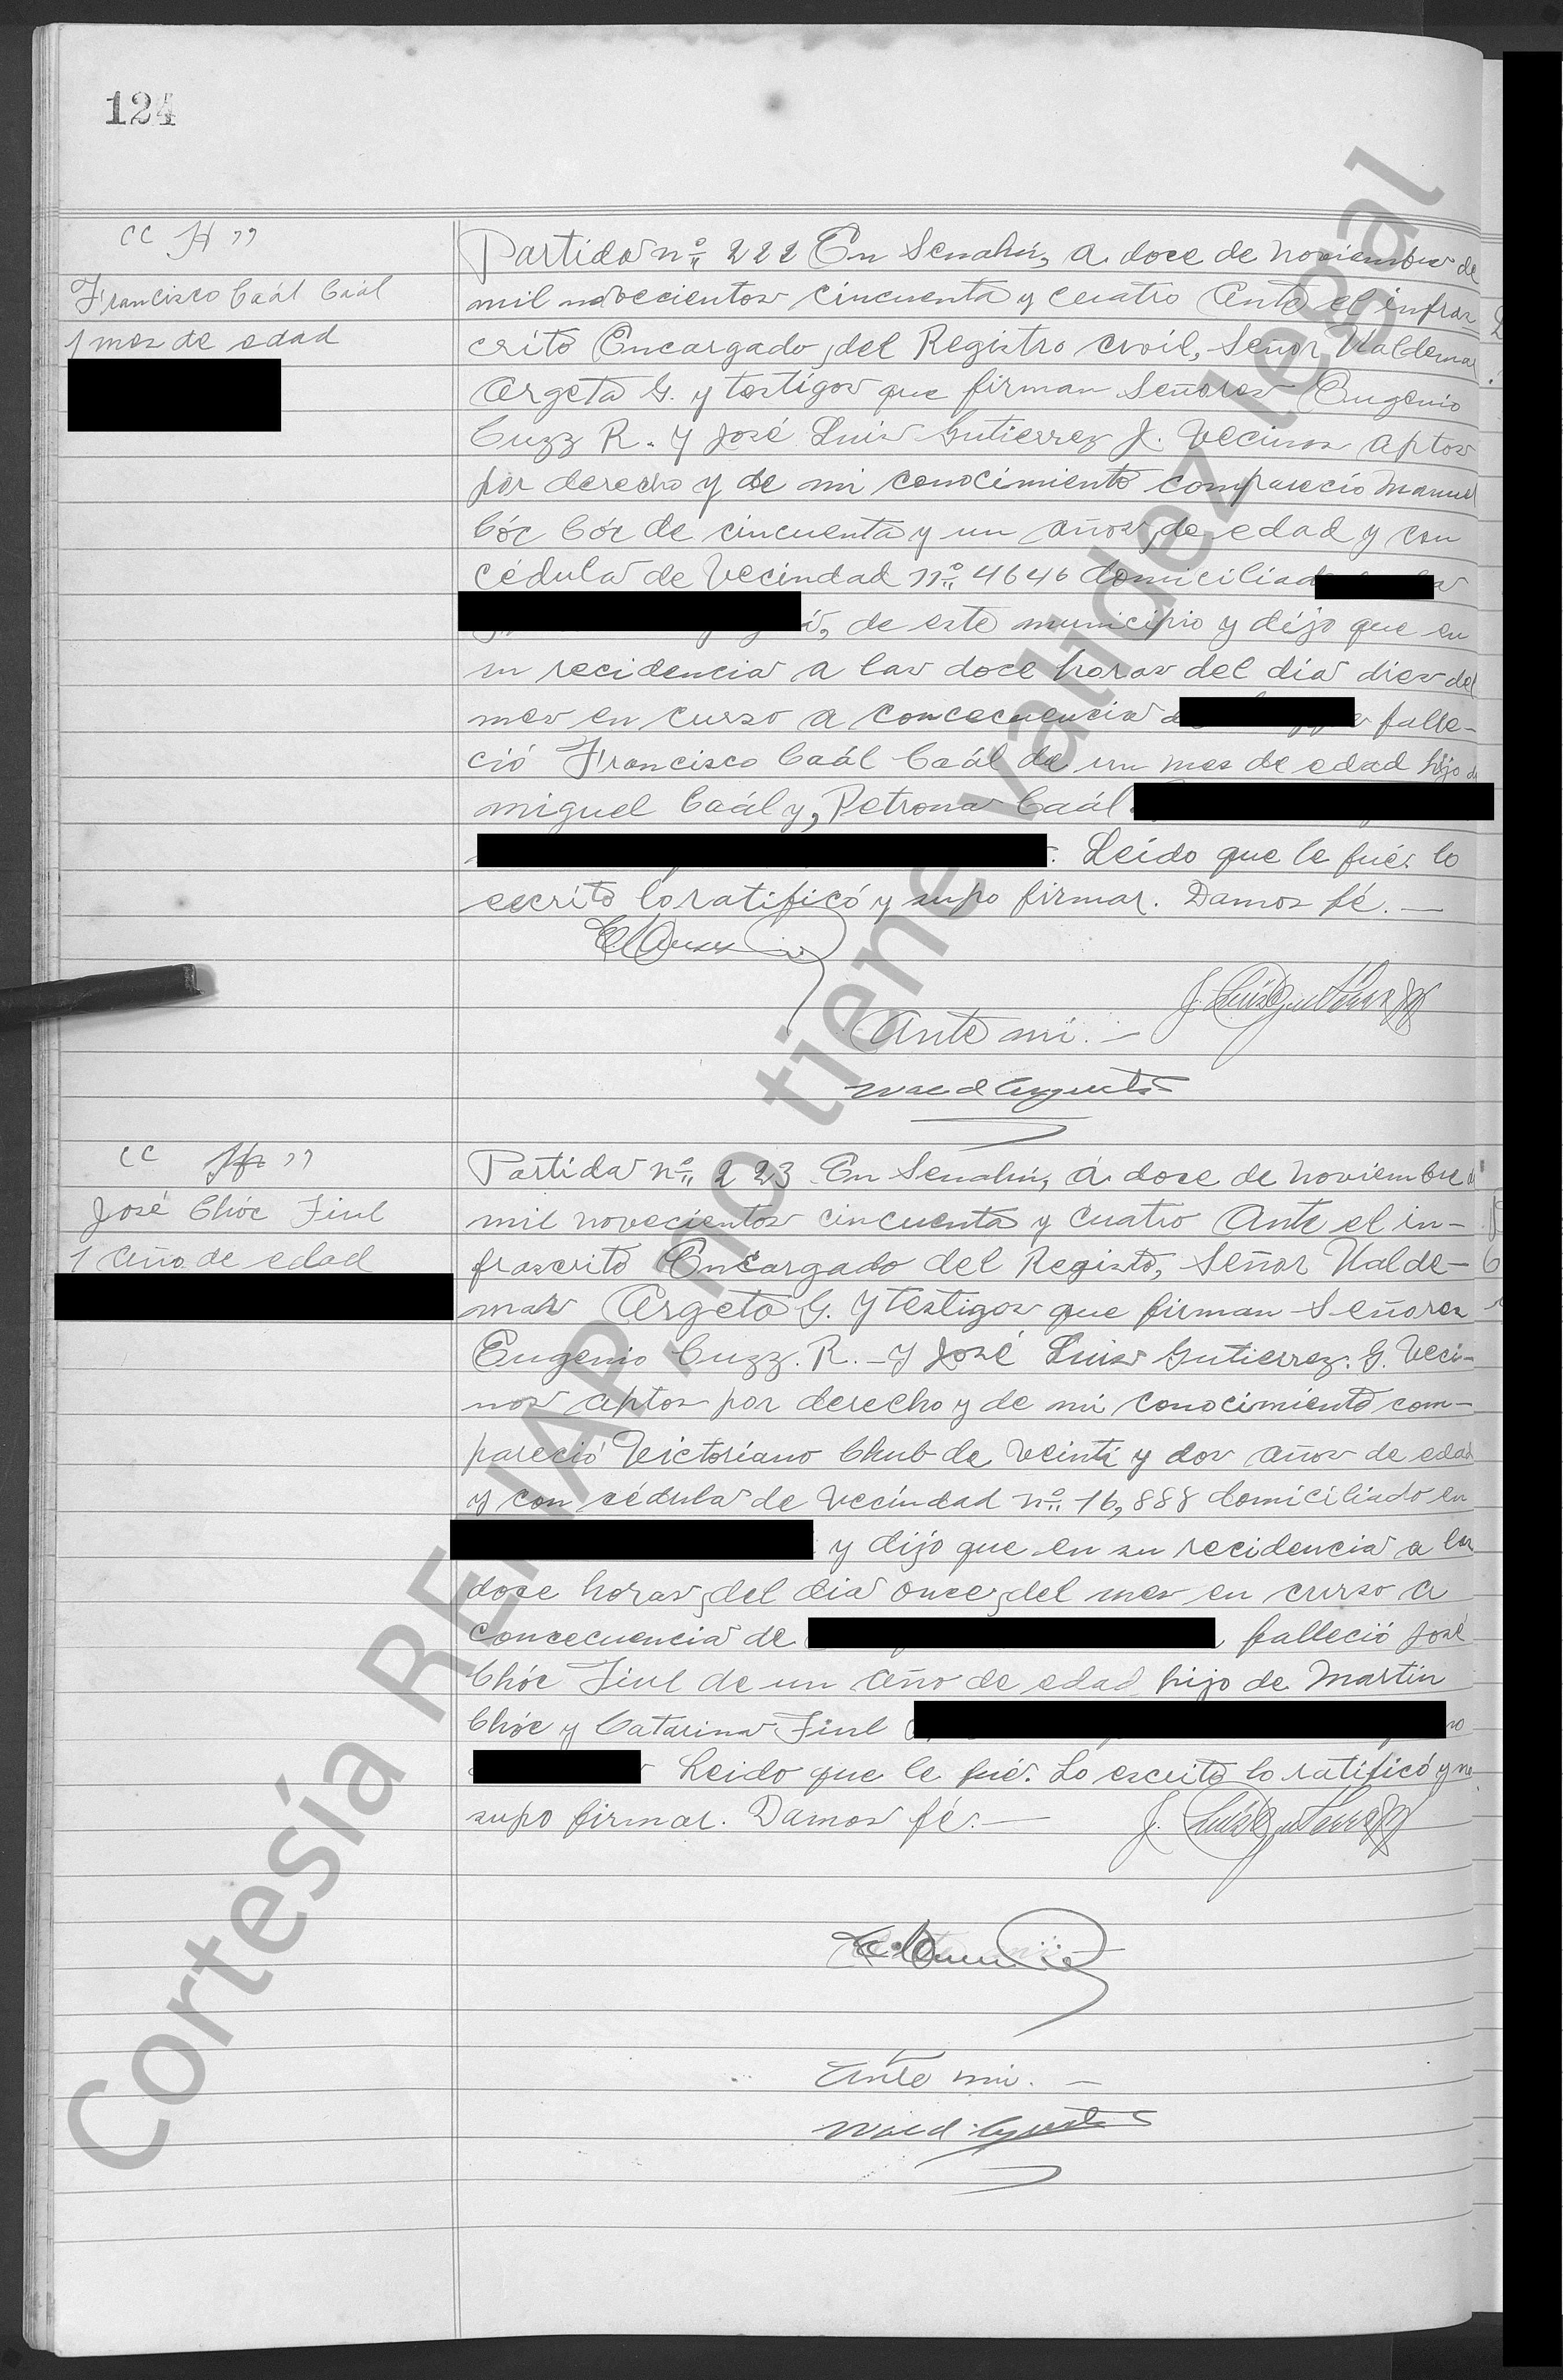 124
"H"
Francisco Caál Caál
1 mes de edad
Partida nº 222 En Senahú, a doce de Noviembre de
mil novecientos cincuenta y cuatro Ante el infras-
crito Encargado del Registro civil, Señor Ualdemar
Argeta G. y testigos que firman Señores Eugenio
Cuzz R. y José Luis Gutierrez J. Vecinos aptos
por derecho y de mi conocimiento compareció Manuel
Cóc Cóc de cincuenta y un años de edad y con
cédula de Vecindad nº 4646 domiciliado
de este municipio y dijo que en
su recidencia a las doce horas del dia dies del
mes en curso a concecuencia falle-
ció Francisco Caál Caál de un mes de edad hijo de
miguel Caál y, Petrona Caál
Leido que le fué lo
escrito lo ratificó y supo firmar. Damos fé. —
Ante mi. —
"H"
José Chóc Fiul
1 año de edad
Partida nº 223 En Senahú, a doce de Noviembre de
mil novecientos cincuenta y cuatro Ante el in-
frascrito Encargado del Registo, Señor Ualde-
mar Argeta G. y testigos que firman Señores
Eugenio Cuzz. R. - y José Luis Gutierrez. G. Veci-
nos aptos por derecho y de mi conocimiento com-
pareció Victoriano Chub de Veinti y dos años de edad
y con cédula de Vecindad nº 16,888 domiciliado en
y dijo que en su recidencia a las
doce horas del dia once del mes en curso a
concecuencia de falleció José
Chóc Fiul de un año de edad hijo de Martin
Chóc y Catarina Fiul
Leido que le fué. Lo escrito lo ratificó y no
supo firmar. Damos fé. —
Ante mi. —
Cortesía RENAP, no tiene validez legal